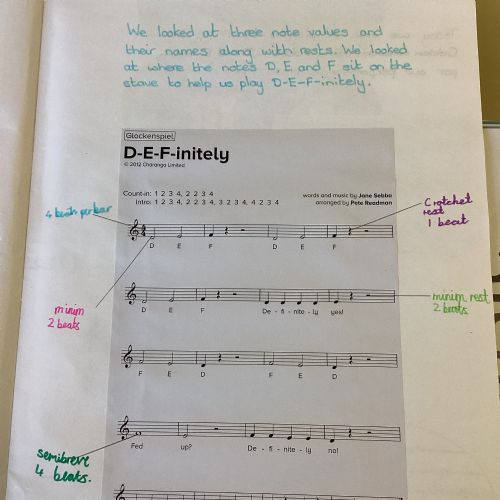 We looked at three note values and
their names along with rests. We looked
at where the notes D, E and F sit on the
stave to help us play D-E-F-initely.
Glockenspiel
D-E-F-initely
© 2012 Charanga Limited
Count-in: 1 2 3 4, 2 2 3 4
Intro: 1 2 3 4, 2 2 3 4, 3 2 3 4, 4 2 3 4
words and music by Jane Sebba
arranged by Pete Readman
4 beats per bar
Crotchet
rest
1 beat
4 4
D E F D E F
minim
2 beats
minim rest
2 beats
D E F De - fi - nite - ly yes!
F E D F E D
semibreve
4 beats.
Fed up? De - fi - nite - ly no!